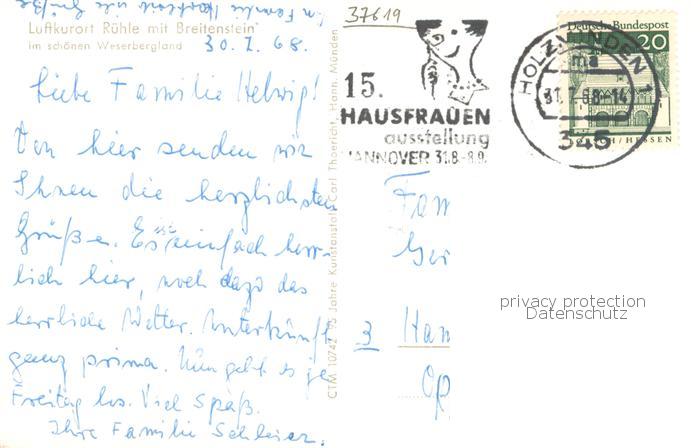 Luftkurort Rühle mit Breitenstein
im schönen Weserbergland
30.7.68.
Liebe Familie Helwig!
Von hier senden wir
Ihnen die herzlichsten
Grüße. Es ist einfach herr-
lich hier, noch dazu das
herrliche Wetter. Unterkunft
ganz prima. Nun geht es ja
Freitag los. Viel Spaß.
Ihre Familie Schleier.
CTM 10742 95 Jahre Kunstanstalt Carl Thoericht, Hann. Münden
37619
15.
HAUSFRAUEN
ausstellung
HANNOVER 31.8.-8.9.
HOLZMINDEN 1
ma
31.7.68.-14
345
Deutsche Bundespost
20
/HESSEN
Fam
Ger
3 Han
privacy protection
Datenschutz